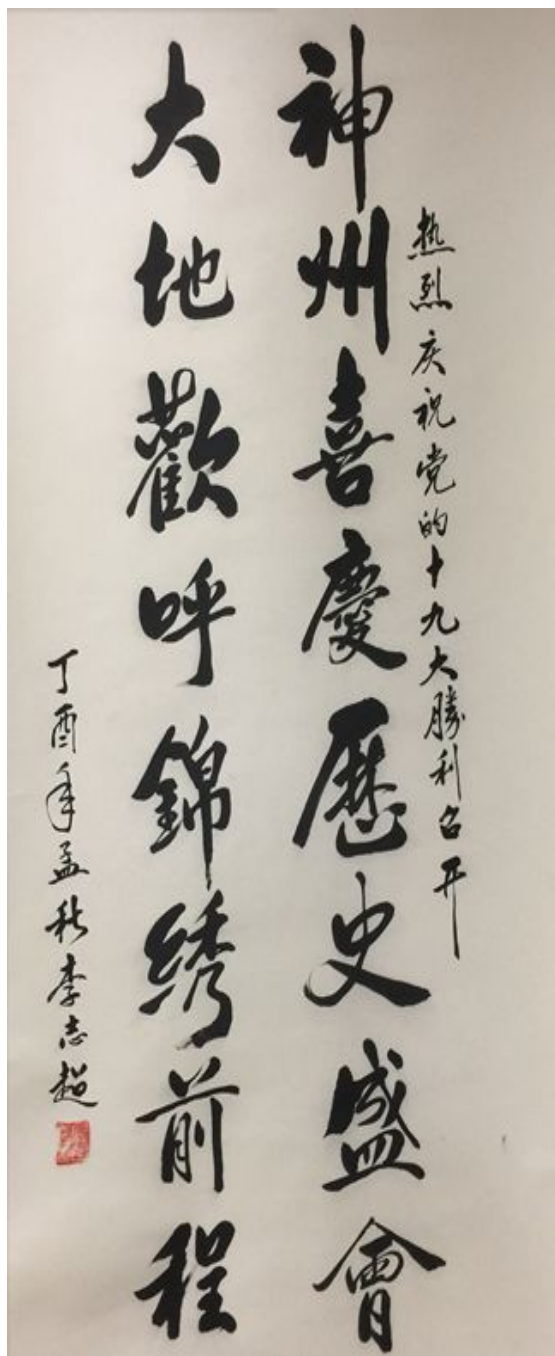 热烈庆祝党的十九大勝利召开
神州喜慶歷史盛會
大地歡呼錦綉前程
丁酉年孟秋李志超